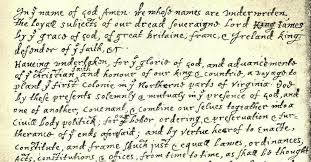 In yᵉ name of god Amen. We whose names are underwriten,
the loyall subjects of our dread soveraigne Lord King James
by yᵉ grace of god, of great britaine, franc, & Ireland king,
defender of yᵉ faith, &c
Haveing undertaken, for yᵉ glorie of god, and advancemente
of yᵉ christian faith and honour of our king & countrie, a voyage to
plant yᵉ first colonie in yᵉ Northerne parts of Virginia. Doe
by these presents solemnly & mutualy in yᵉ presence of god, and
one of another, covenant, & combine our selves togeather into a
civill body politick, for our better ordering, & preservation & fur-
therance of yᵉ ends aforesaid; and by vertue hearof to enacte,
constitute, and frame such just & equall lawes, ordinances,
acts, constitutions, & offices, from time to time, as shall be thought